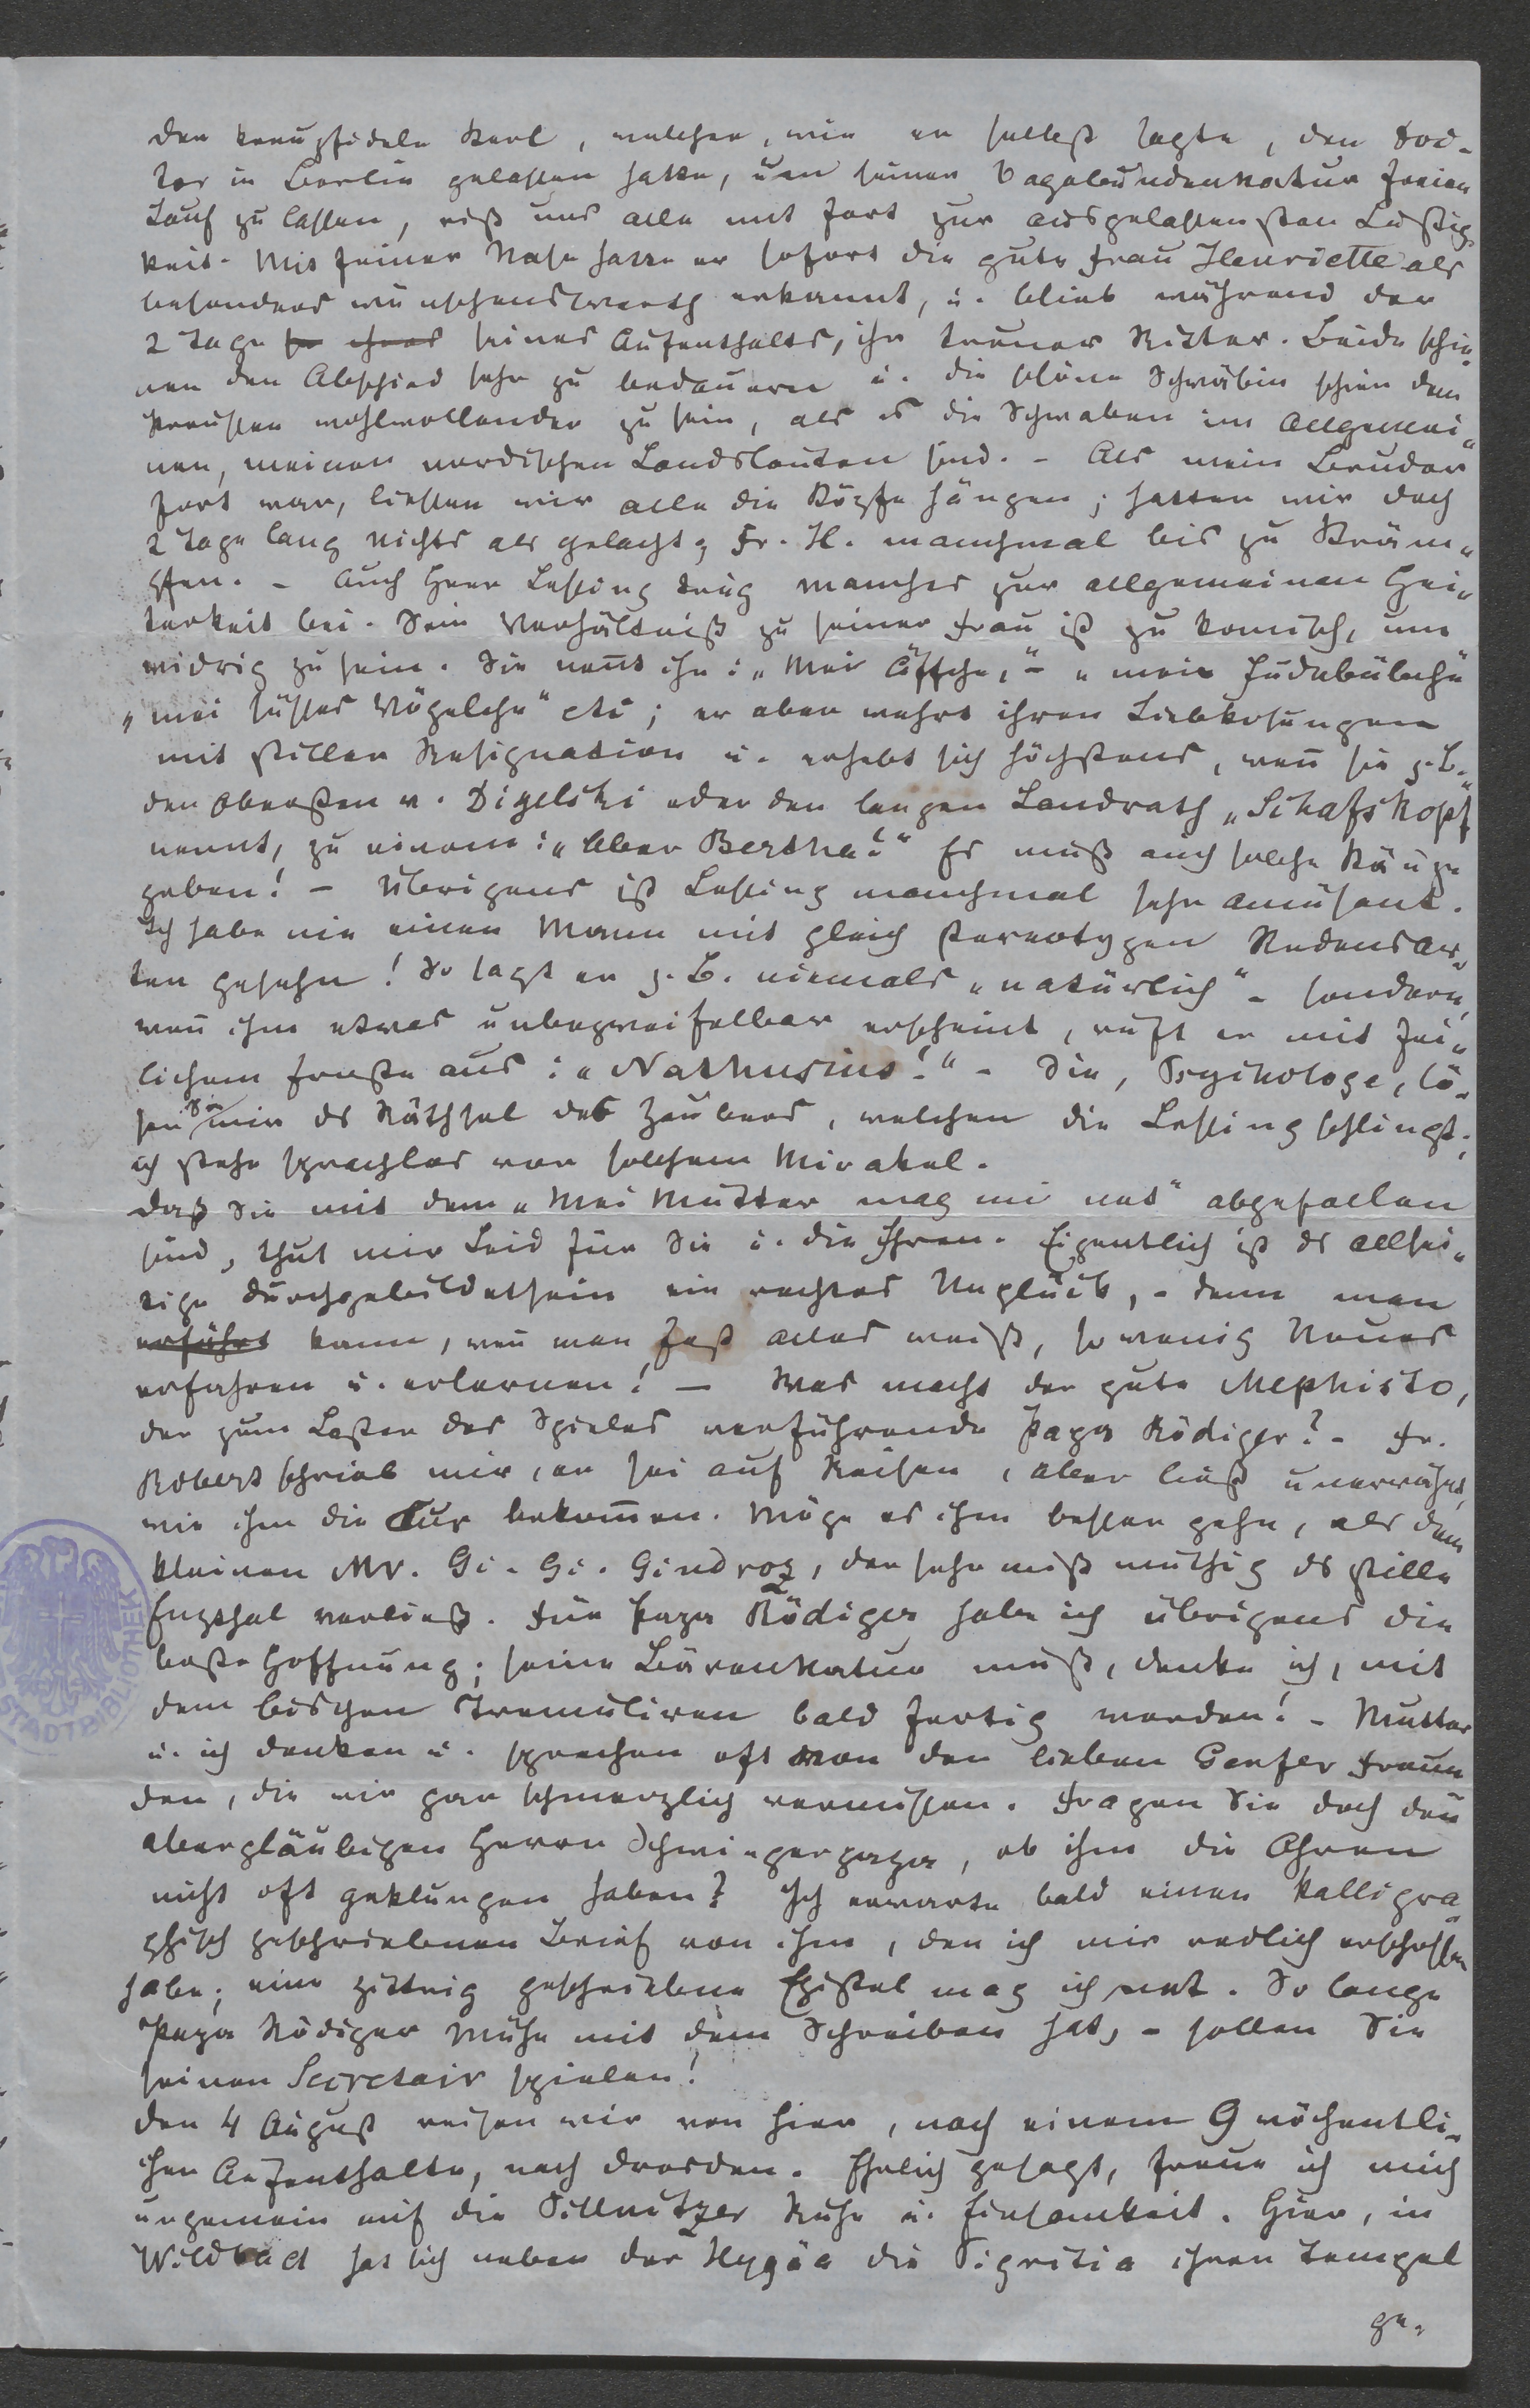 der kreuzfidele Kerl, welcher, wie er selbst sagte, den Doc-
tor in Berlin gelassen hatte, um seiner Vagabundennatur freien
Lauf zu lassen, riß uns alle mit fort zur ausgelassensten Lustig-
keit. Mit feiner Nase hatte er sofort die gute Frau Henriette als
besonders wünschenswerth erkannt, u. blieb während der
2 Tage seines Aufenthalts, ihr treuer Ritter. Beide schie-
nen den Abschied sehr zu bedauern u. die schöne Schwäbin schien dem
Preussen wohlwollender zu sein, als es die Schwaben im Allgemei-
nen, meinen nordischen Landsleuten sind. - Als mein Bruder
fort war, liessen wir alle die Köpfe hängen; hatten wir doch
2 Tage lang nichts als gelacht, Fr. H. manchmal bis zu Kräm-
pfen. - Auch Herr Lessing trug manches zur allgemeinen Hei-
terkeit bei. Sein Verhältniß zu seiner Frau ist zu komisch, um
widrig zu sein. Sie nent ihn: „Mei Äffche," - „mein Judebübche"
„mei süsses Vögelche" etc; er aber wehrt ihren Liebkosungen
mit stiller Resignation u. erhebt sich höchstens, wen sie z. B.
den Obersten v. Digelski oder den langen Landrath „Schafskopf"
nennt, zu einem: „Aber Bertha!" Es muß auch solche Käuze
geben! - Übrigens ist Lessing manchmal sehr amüsant.
Ich habe nie einen Mann mit gleich stereotypen Redensar-
ten gesehn! So sagt er z. B. niemals „natürlich" - sondern,
wen ihm etwas unbezweifelbar erscheint, ruft er mit fei-
lichem Ernste aus: „Nathusius!" - Sie, Psychologe, lö-
sen Sie mir ds Räthsel des Zaubers, welchen die Lessing schlingt;
ich stehe sprachlos vor solchem Mirakel.
Daß Sie mit dem „Mei Mutter mag mi net" abgefallen
sind, thut mir Leid für Sie u. die Ihren. Eigentlich ist ds allsei-
tige Durchgebildetsein ein rechtes Unglück, - denn man
erfährt kann, wen man fast alles weiß, so wenig Neues
erfahren u. erlernen! - Was macht der gute Mephisto,
der zum Laster des Spieles verführende Papa Rödiger? - Fr.
Robert schrieb mir, er sei auf Reisen, aber ließ unerwähnt,
wie ihm die Cur bekomen. Möge es ihm besser gehn, als dem
kleinen Mr. Gi. Gi. Gindroz, der sehr mißmuthig ds stille
Enzthal verließ. Für Papa Rödiger habe ich übrigens die
beste Hoffnung; seine Bärennatur muß, denke ich, mit
dem bischen Tremuliren bald fertig werden! - Mutter
u. ich denken u. sprechen oft von den lieben Genfer Freun
den, die wir gar schmerzlich vermissen. Fragen Sie doch den
abergläubigen Herrn Schwiegerpapa, ob ihm die Ohren
nicht oft geklungen haben? Ich erwarte bald einen kalligra-
phisch geschriebenen Brief von ihm, den ich mir redlich erschossen
habe; eine zittrig geschriebene Epistel mag ich net. So lange
Papa Rödiger Mühe mit dem Schreiben hat, - sollen Sie
seinen Secretair spielen!
Den 4 August reisen wir von hier, nach einem 9 wöchentli-
chen Aufenthalte, nach Dresden. Ehrlich gesagt, freue ich mich
ungemein auf die Pillnitzer Ruhe u. Einsamkeit. Hier, in
Wildbad hat sich neben der Hygäa die Pigritia ihren Tempel
ge-
STADTBIBLIOTHEK